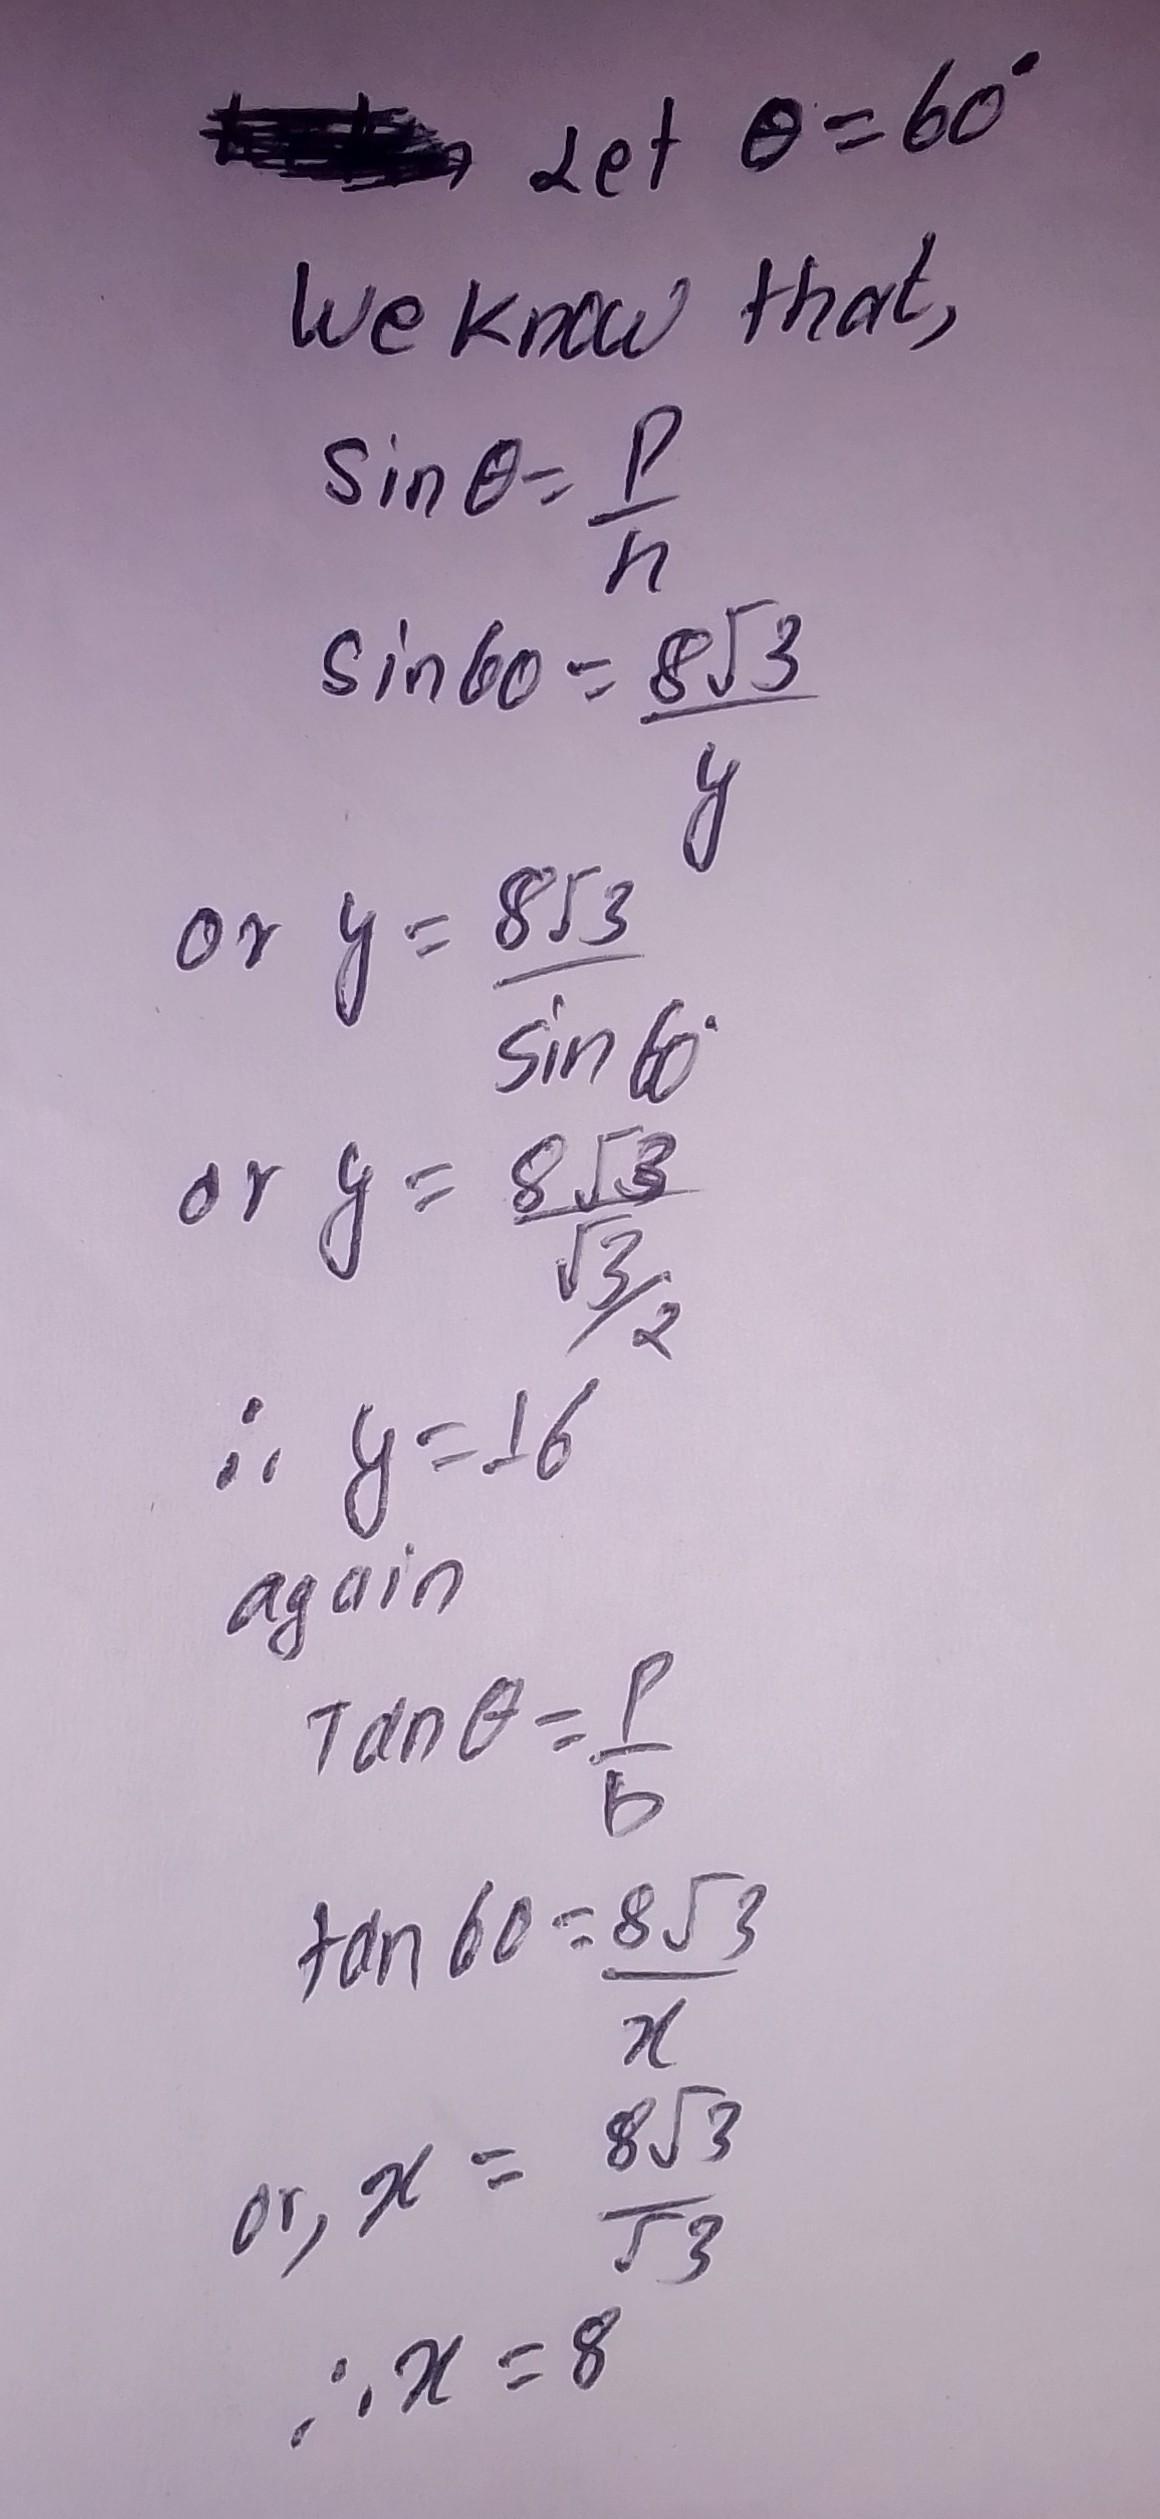 , Let θ = 60°
We know that,
Sin θ = P/h
Sin 60 = 8√3/y
or y = 8√3/Sin 60°
or y = 8√3/√3/2
∴ y = 16
again
Tan θ = P/b
tan 60 = 8√3/x
or, x = 8√3/√3
∴ x = 8